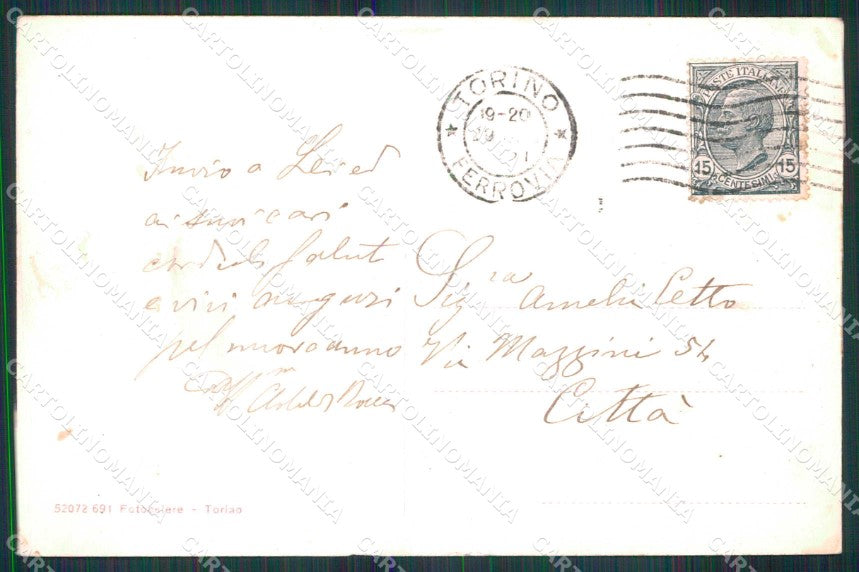 TORINO
19-20
21
FERROVIA
POSTE ITALIANE
15 CENTESIMI 15
Invio a Lei ed
ai suoi cari
cordiali saluti
e vivi auguri
pel nuovo anno
Sig.ra Amelia Cetto
Via Mazzini 54
Città
52072 691 Fotocelere - Torino
CARTOLINOMANIA